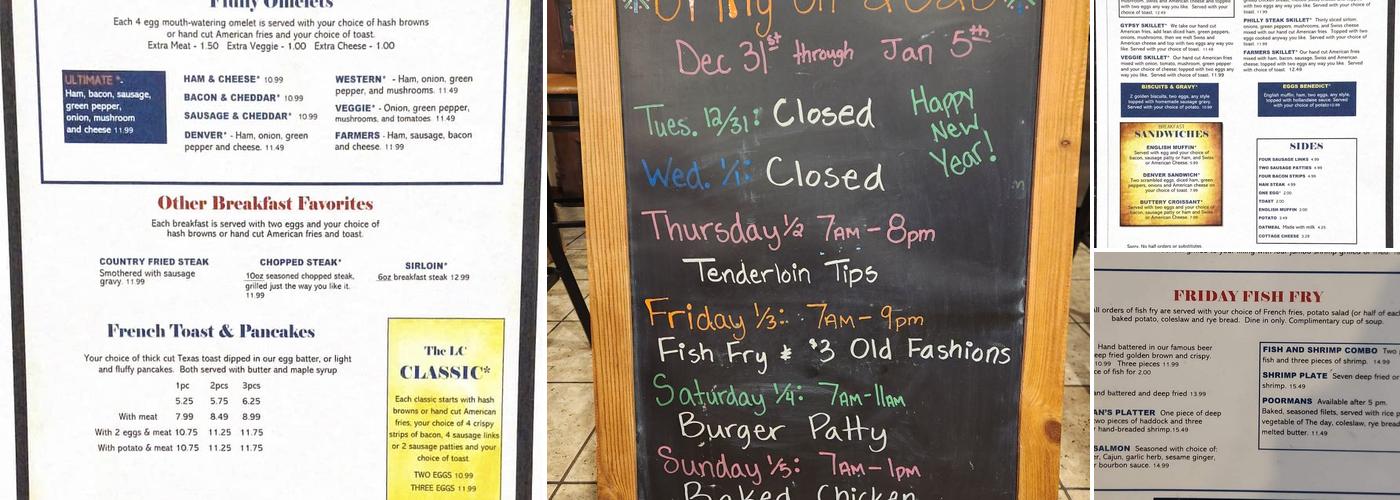 Fluffy Omelets
Each 4 egg mouth-watering omelet is served with your choice of hash browns
or hand cut American fries and your choice of toast.
Extra Meat - 1.50 Extra Veggie - 1.00 Extra Cheese - 1.00
ULTIMATE *-
Ham, bacon, sausage,
green pepper,
onion, mushroom
and cheese 11.99
HAM & CHEESE* 10.99
BACON & CHEDDAR* 10.99
SAUSAGE & CHEDDAR* 10.99
DENVER* - Ham, onion, green
pepper and cheese. 11.49
WESTERN* - Ham, onion, green
pepper, and mushrooms. 11.49
VEGGIE* - Onion, green pepper,
mushrooms, and tomatoes 11.49
FARMERS - Ham, sausage, bacon
and cheese. 11.99
Other Breakfast Favorites
Each breakfast is served with two eggs and your choice of
hash browns or hand cut American fries and toast.
COUNTRY FRIED STEAK
Smothered with sausage
gravy. 11.99
CHOPPED STEAK*
10oz seasoned chopped steak,
grilled just the way you like it.
11.99
SIRLOIN*
6oz breakfast steak 12.99
French Toast & Pancakes
Your choice of thick cut Texas toast dipped in our egg batter, or light
and fluffy pancakes. Both served with butter and maple syrup
1pc 2pcs 3pcs
5.25 5.75 6.25
With meat 7.99 8.49 8.99
With 2 eggs & meat 10.75 11.25 11.75
With potato & meat 10.75 11.25 11.75
The LC
CLASSIC*
Each classic starts with hash
browns or hand cut American
fries, your choice of 4 crispy
strips of bacon, 4 sausage links
or 2 sausage patties and your
choice of toast.
TWO EGGS 10.99
THREE EGGS 11.99
Dec 31st through Jan 5th
Tues. 12/31: Closed
Happy
New
Year!
Wed. 1/1: Closed
Thursday 1/2 7AM - 8pm
Tenderloin Tips
Friday 1/3: 7AM - 9pm
Fish Fry & $3 Old Fashions
Saturday 1/4: 7AM-11AM
Burger Patty
Sunday 1/5: 7AM - 1pm
Baked Chicken
GYPSY SKILLET* We take our hand cut
American fries, add lean diced ham, green peppers,
onions, mushrooms, then we melt Swiss and
American cheese and top with two eggs any way you
like. Served with your choice of toast. 11.49
VEGGIE SKILLET* Our hand cut American fries
mixed with onion, tomato, mushroom, green pepper
and your choice of cheese; topped with two eggs any
way you like. Served with your choice of toast. 11.99
PHILLY STEAK SKILLET* Thinly sliced sirloin,
onions, green peppers, mushrooms, and Swiss cheese
mixed with our hand cut American fries. Topped with two
eggs cooked anyway you like. Served with your choice of
toast.
FARMERS SKILLET* Our hand cut American fries
mixed with ham, bacon, sausage, and American cheese;
topped with two eggs any way you like. Served with your
choice of toast. 12.49
BISCUITS & GRAVY*
2 golden biscuits, two eggs, any style
topped with homemade sausage gravy.
Served with your choice of potato.
EGGS BENEDICT*
English muffin, ham, two eggs, any style,
topped with hollandaise sauce. Served
with your choice of potato
BREAKFAST
SANDWICHES
ENGLISH MUFFIN*
Served with egg and your choice of
bacon, sausage patty or ham, and Swiss
or American Cheese.
DENVER SANDWICH*
Two scrambled eggs, diced ham, green
peppers, onions and American cheese on
your choice of toast
BUTTERY CROISSANT*
Served with two eggs and your choice of
bacon, sausage patty or ham and Swiss
or American Cheese
SIDES
FOUR SAUSAGE LINKS 4.99
TWO SAUSAGE PATTIES 4.99
FOUR BACON STRIPS 4.99
HAM STEAK 4.99
ONE EGG* 2.00
TOAST 2.00
ENGLISH MUFFIN 2.00
POTATO 3.49
OATMEAL Made with milk 4.25
COTTAGE CHEESE 3.29
Sorry, No half orders or substitutes
FRIDAY FISH FRY
All orders of fish fry are served with your choice of French fries, potato salad (or half of each
baked potato, coleslaw and rye bread. Dine in only. Complimentary cup of soup.
Hand battered in our famous beer
deep fried golden brown and crispy.
10.99 Three pieces 11.99
piece of fish for 2.00
and battered and deep fried 13.99
PLATTER One piece of deep
two pieces of haddock and three
hand-breaded shrimp. 15.49
SALMON Seasoned with choice of:
Cajun, garlic herb, sesame ginger,
or bourbon sauce. 14.99
FISH AND SHRIMP COMBO Two
fish and three pieces of shrimp. 14.99
SHRIMP PLATE Seven deep fried or
shrimp. 15.49
POORMANS Available after 5 pm.
Baked, seasoned filets, served with rice
vegetable of The day, coleslaw, rye bread
melted butter. 11.49